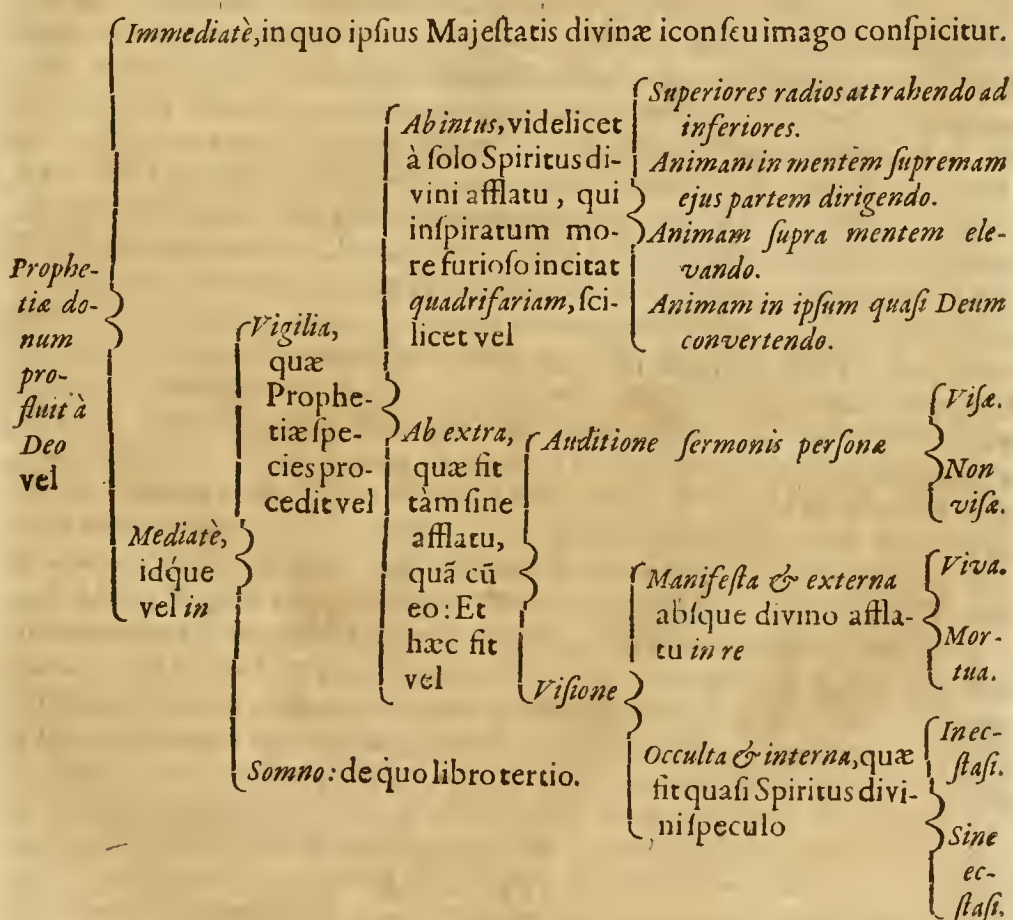 Immediatè, in quo ipſius Majeſtatis divinæ icon ſeu imago conſpicitur.
Prophe-
tiæ do-
num
pro-
fluit à
Deo
vel
Mediatè,
idq́ue
vel in
Vigilia,
quæ
Prophe-
tiæ ſpe-
cies pro-
cedit vel
Ab intus, videlicet
à ſolo Spiritus di-
vini afflatu, qui
inſpiratum mo-
re furioſo incitat
quadrifariam, ſci-
licet vel
Superiores radios attrahendo ad
inferiores.
Animam in mentem ſupremam
ejus partem dirigendo.
Animam ſupra mentem ele-
vando.
Animam in ipſum quaſi Deum
convertendo.
Ab extra,
quæ fit
tàm ſine
afflatu,
quã cũ
eo: Et
hæc fit
vel
Auditione ſermonis perſonæ
Viſæ.
Non
viſæ.
Viſione
Manifeſta & externa
abſque divino affla-
tu in re
Viva.
Mor-
tua.
Occulta & interna, quæ
fit quaſi Spiritus divi-
ni ſpeculo
In ec-
ſtaſi.
Sine
ec-
ſtaſi.
Somno: de quo libro tertio.